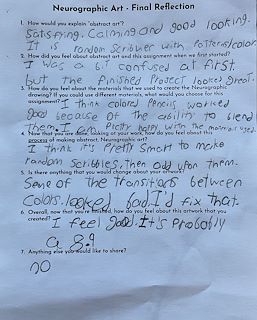 Neurographic Art - Final Reflection
1. How would you explain "abstract art"?
Satisfying. Calming and good looking.
It is random Scribbles with patterns/color
2. How did you feel about abstract art and this assignment when we first started?
I was a bit confused at first,
but the finished Project looked great.
3. How do you feel about the materials that we used to create the Neurographic
drawing? If you could use different materials, what would you choose for this
assignment? I think colored Pencils worked
good because of the ability to blend
them. I am Pretty happy with the materials used.
4. Now that you are done, looking at your work, how do you feel about this
process of making abstract, Neurographic art?
I think it's Pretty Smart to make
random Scribbles, Then add upon them.
5. Is there anything that you would change about your artwork?
Some of the transitions between
Colors looked bad. I'd fix that.
6. Overall, now that you're finished, how do you feel about this artwork that you
created? I feel good. It's Probably
a 8.9
7. Anything else you would like to share?
no